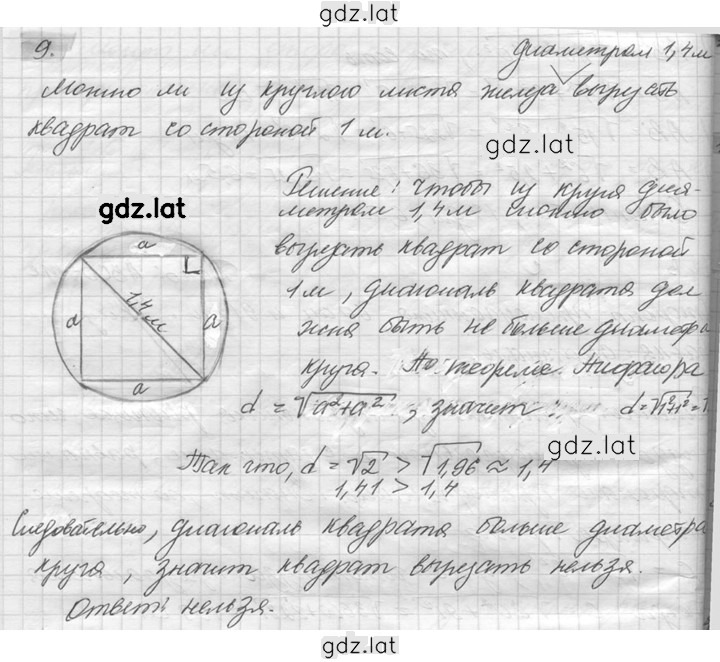 gdz.lat
9. диаметром 1,4 м
Можно ли из круглого листа железа вырезать
квадрат со стороной 1 м.
gdz.lat
Решение: Чтобы из круга диа-
метром 1,4 м можно было
gdz.lat
вырезать квадрат со стороной
1 м, диагональ квадрата дол
жна быть не больше диаметра
круга. По теореме Пифагора
a
a
1,4 м
a
a
d = √a²+a², значит: d = √1²+1² =
gdz.lat
Так что, d = √2 > √1,96 ≈ 1,4
1,41 > 1,4
Следовательно, диагональ квадрата больше диаметра
круга, значит квадрат вырезать нельзя.
Ответ: нельзя.
gdz.lat